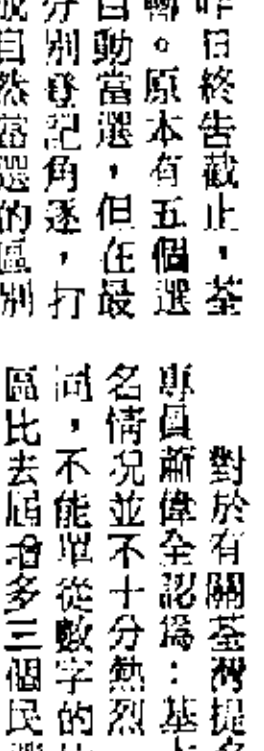 日終告截止，荃
。原本有五個選
自動當選，但在最
分別登記角逐，打
自然當選的區別
對於有關荃灣提
專員蕭偉全認為：基
名情況並不十分熱烈
問，不能單從數字的
區比去屆增多三個民